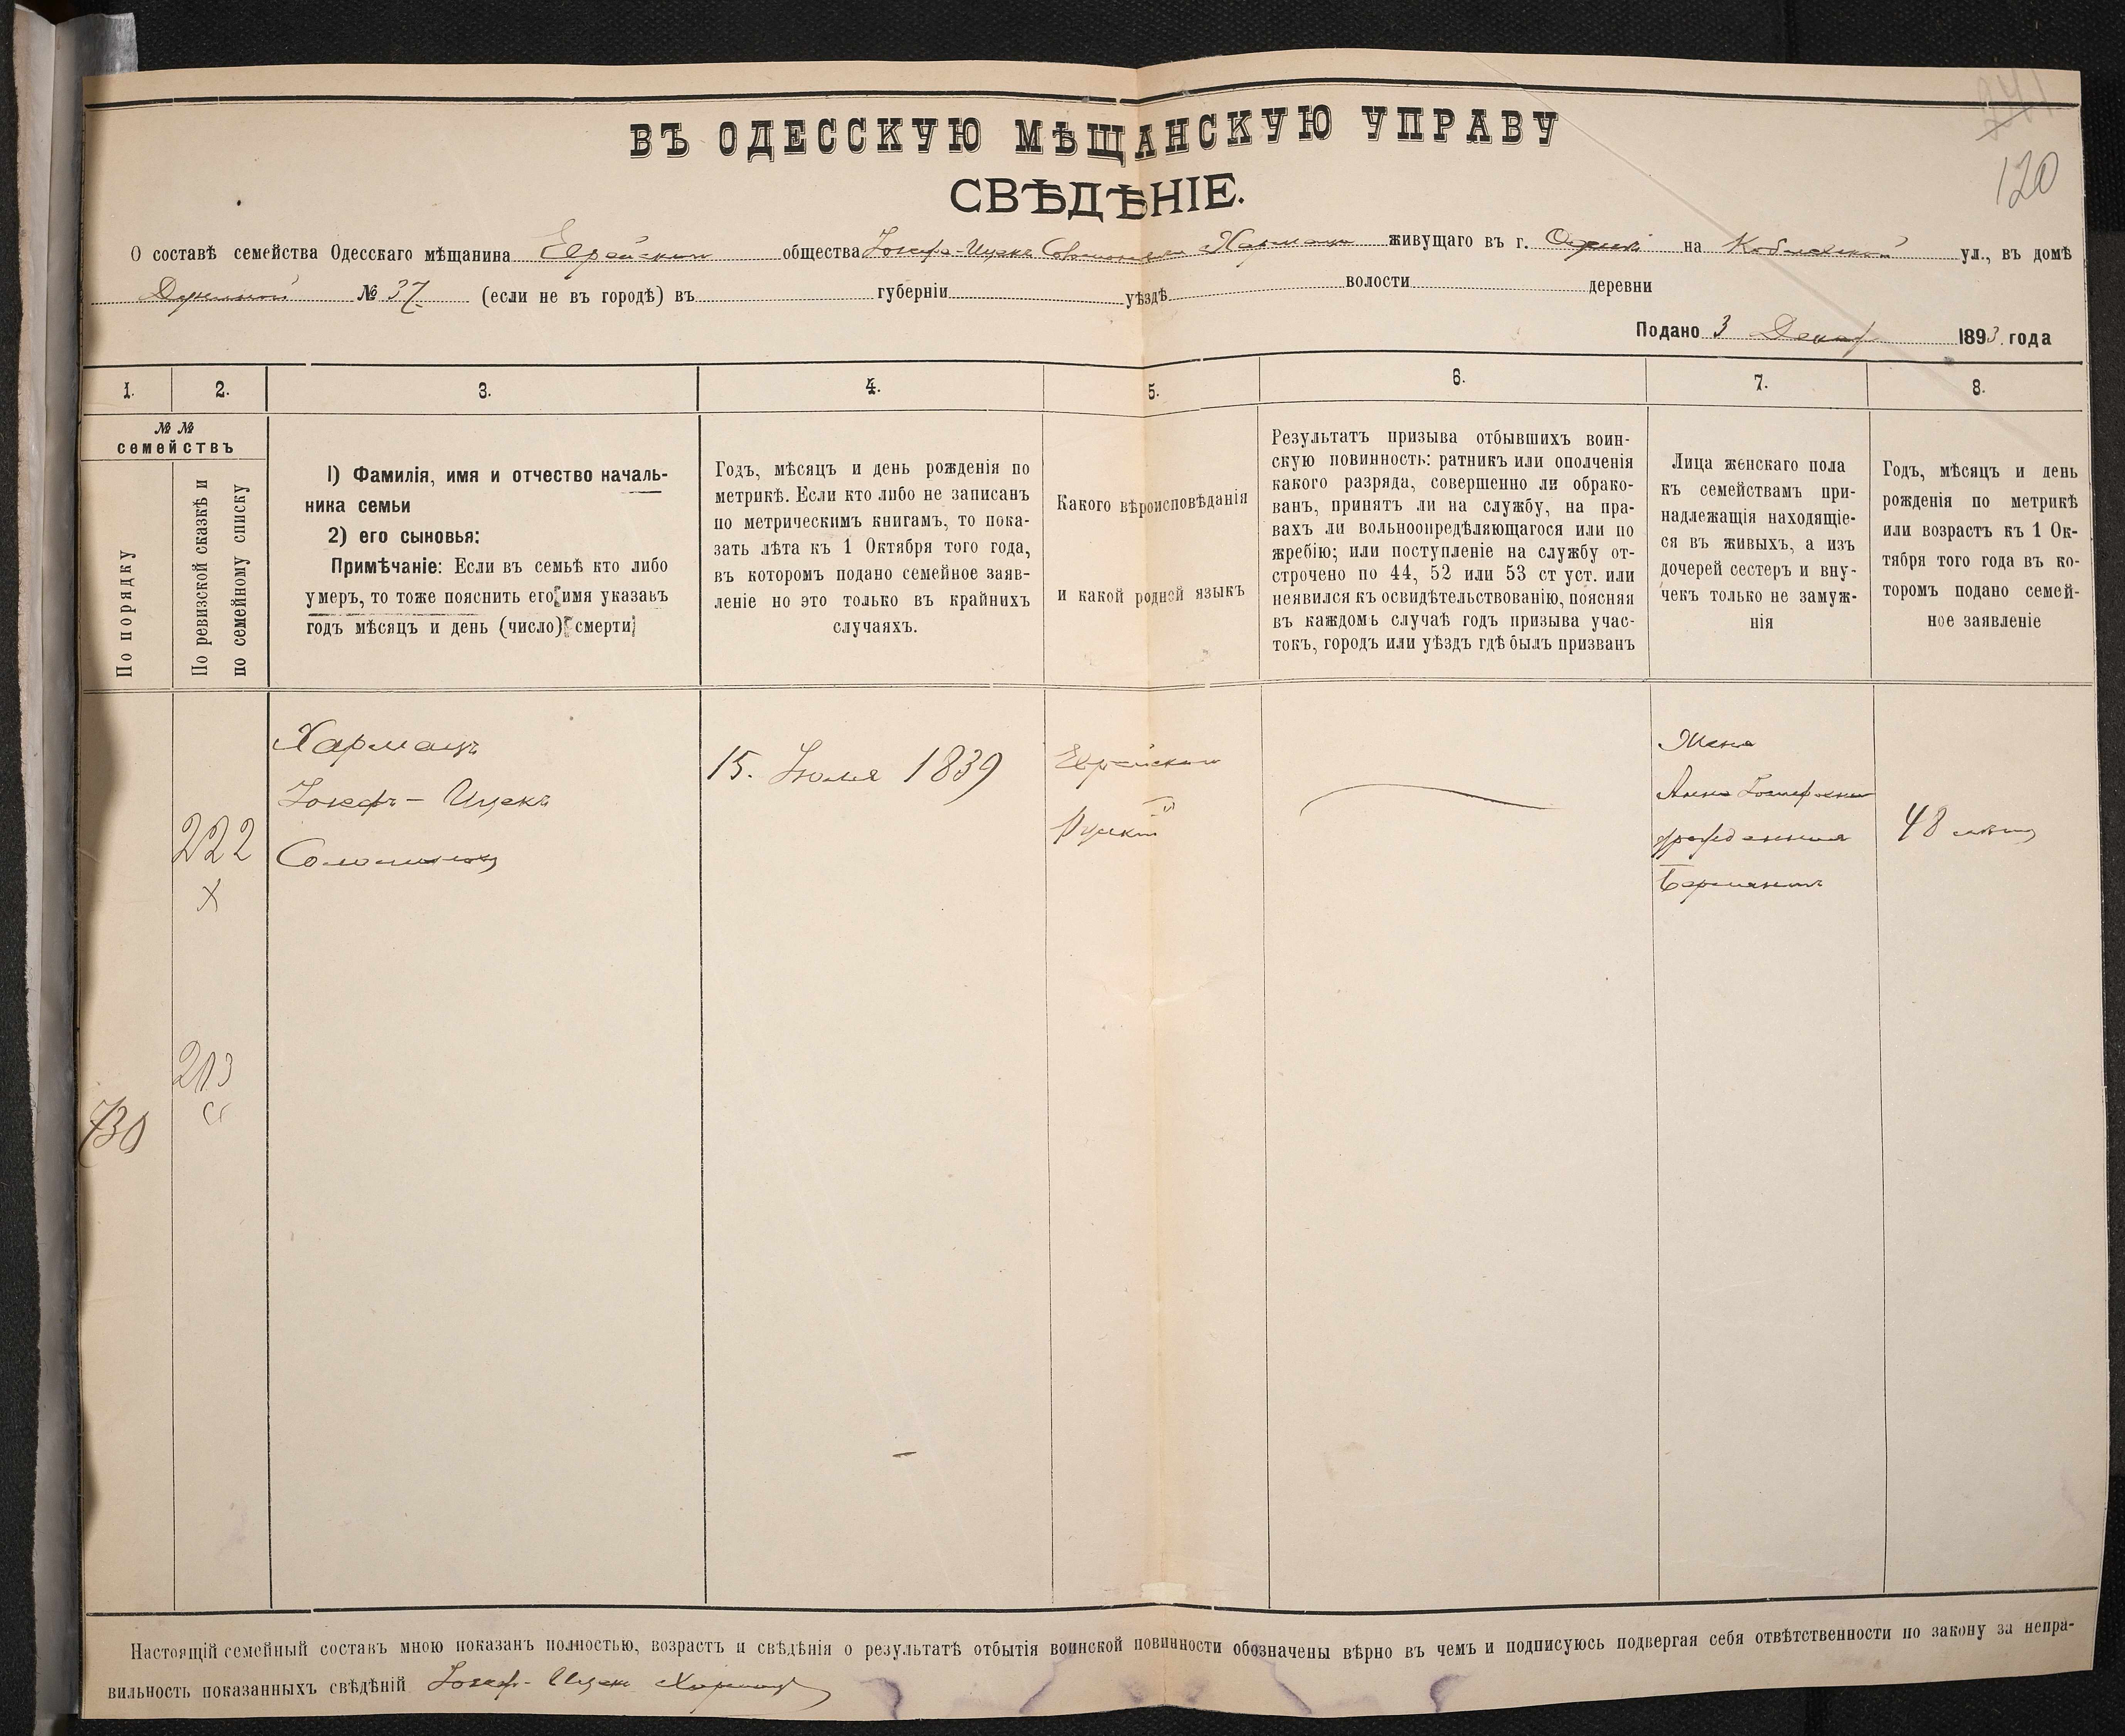 241
120
ВЪ ОДЕССКУЮ МѢЩАНСКУЮ УПРАВУ
СВѢДѢНІЕ.
О составѣ семейства Одесскаго мѣщанина Еврейскаго общества Іосифа-Ицека Соломонова Хармаца живущаго въ г. Одессѣ на Коблевской ул., въ домѣ
№ 37 (если не въ городѣ) въ губерніи уѣздѣ волости деревни
Подано 3 Декаб 1893 года
1. 2. 3. 4. 5. 6. 7. 8.
№ № семействъ
По порядку
По ревизской сказкѣ и
по семейному списку
1) Фамилія, имя и отчество началь-
ника семьи
2) его сыновья:
Примѣчаніе: Если въ семьѣ кто либо
умеръ, то тоже пояснить его имя указавъ
годъ мѣсяцъ и день (число) смерти;
Годъ, мѣсяцъ и день рожденія по
метрикѣ. Если кто либо не записанъ
по метрическимъ книгамъ, то пока-
зать лѣта къ 1 Октября того года,
въ которомъ подано семейное заяв-
леніе но это только въ крайнихъ
случаяхъ.
Какого вѣроисповѣданія
и какой родной языкъ
Результатъ призыва отбывшихъ воин-
скую повинность: ратникъ или ополченія
какого разряда, совершенно ли обрако-
ванъ, принятъ ли на службу, на пра-
вахъ ли вольноопредѣляющагося или по
жребію; или поступленіе на службу от-
строчено по 44, 52 или 53 ст уст. или
неявился къ освидѣтельствованію, поясняя
въ каждомъ случаѣ годъ призыва учас-
токъ, городъ или уѣздъ гдѣ былъ призванъ
Лица женскаго пола
къ семействамъ при-
надлежащія находящіе-
ся въ живыхъ, а изъ
дочерей сестеръ и вну-
чекъ только не замуж-
нія
Годъ, мѣсяцъ и день
рожденія по метрикѣ
или возрастъ къ 1 Ок-
тября того года въ ко-
торомъ подано семей-
ное заявленіе
222
X
213
730
Хармацъ
Іосифъ - Ицекъ
Соломоновъ
15. Іюля 1839
Еврейскаго
Русскій
Жена
Анна
урожденная
Берманъ
48 лѣтъ
Настоящій семейный составъ мною показанъ полностью, возрастъ и свѣдѣнія о результатѣ отбытія воинской повинности обозначены вѣрно въ чемъ и подписуюсь подвергая себя отвѣтственности по закону за непра-
вильность показанныхъ свѣдѣній Іосиф - Ицек Хармац